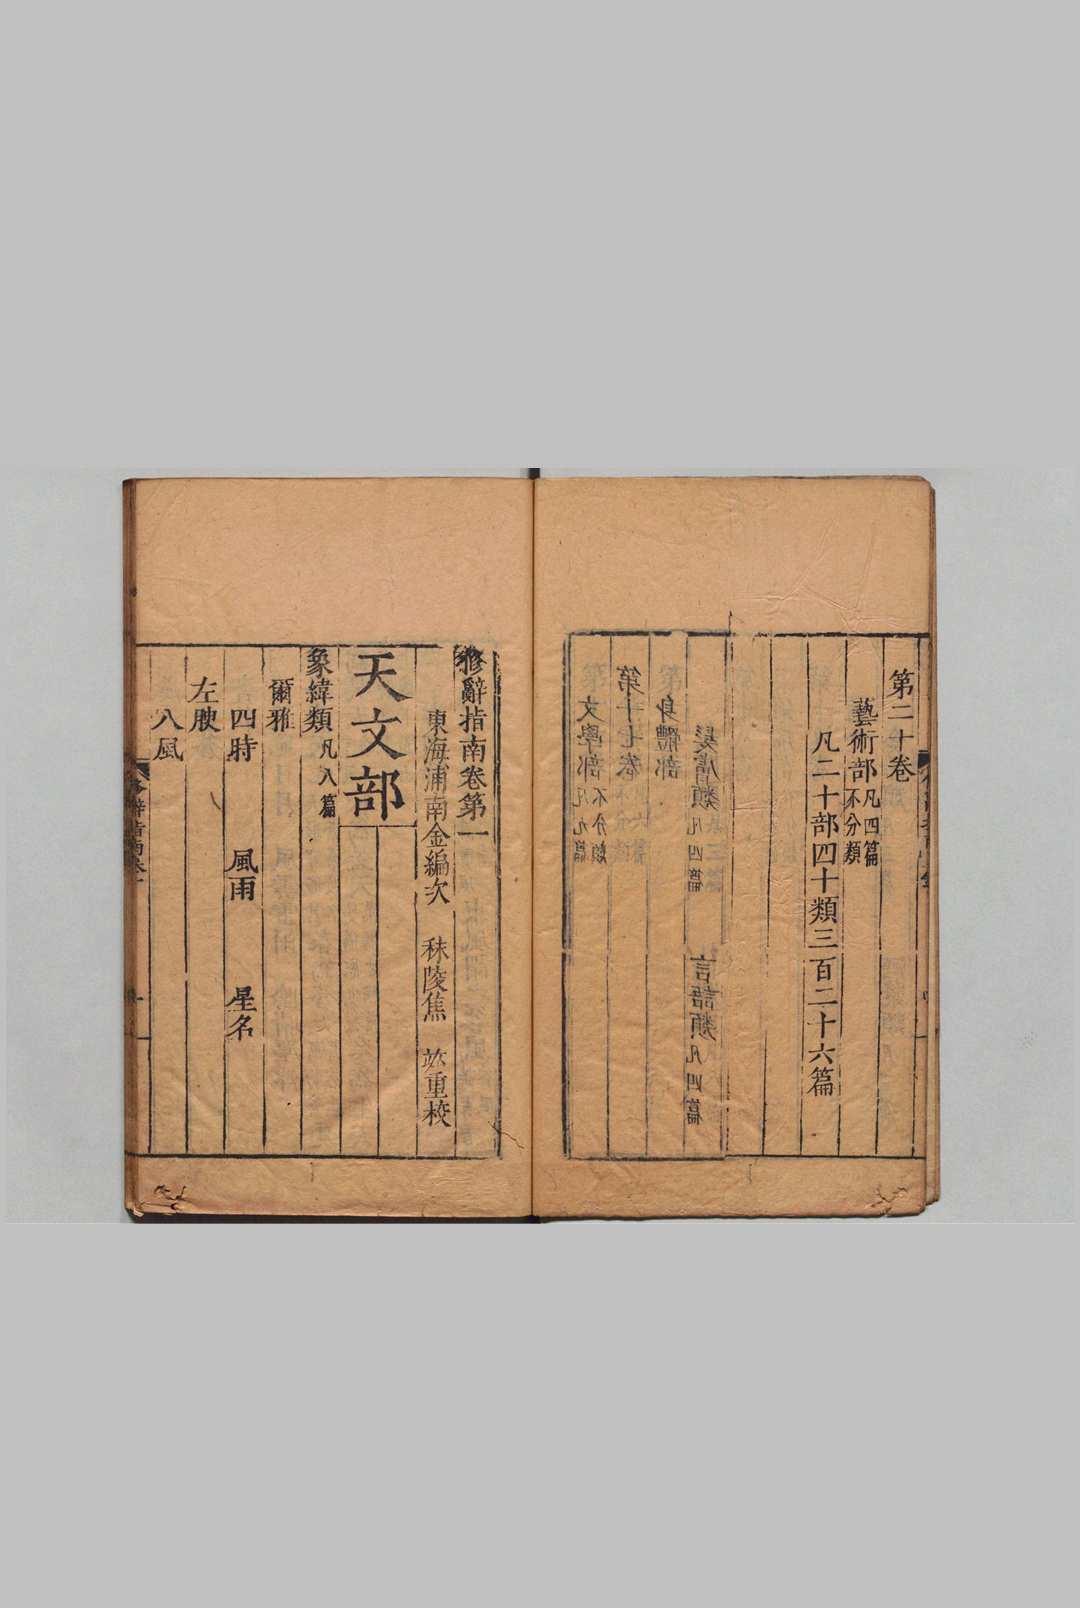 第二十卷
藝術部凡四篇不分類
凡二十部四十類三百二十六篇
髮膚類凡四篇　言語類凡四篇
身體部
第十七卷
文學部不分類凡九篇
修辭指南卷第一
東海浦南金編次　秣陵焦　竑重校
天文部
象緯類凡八篇
爾雅
四時　風雨　星名
左腴
八風
修辭指南卷一